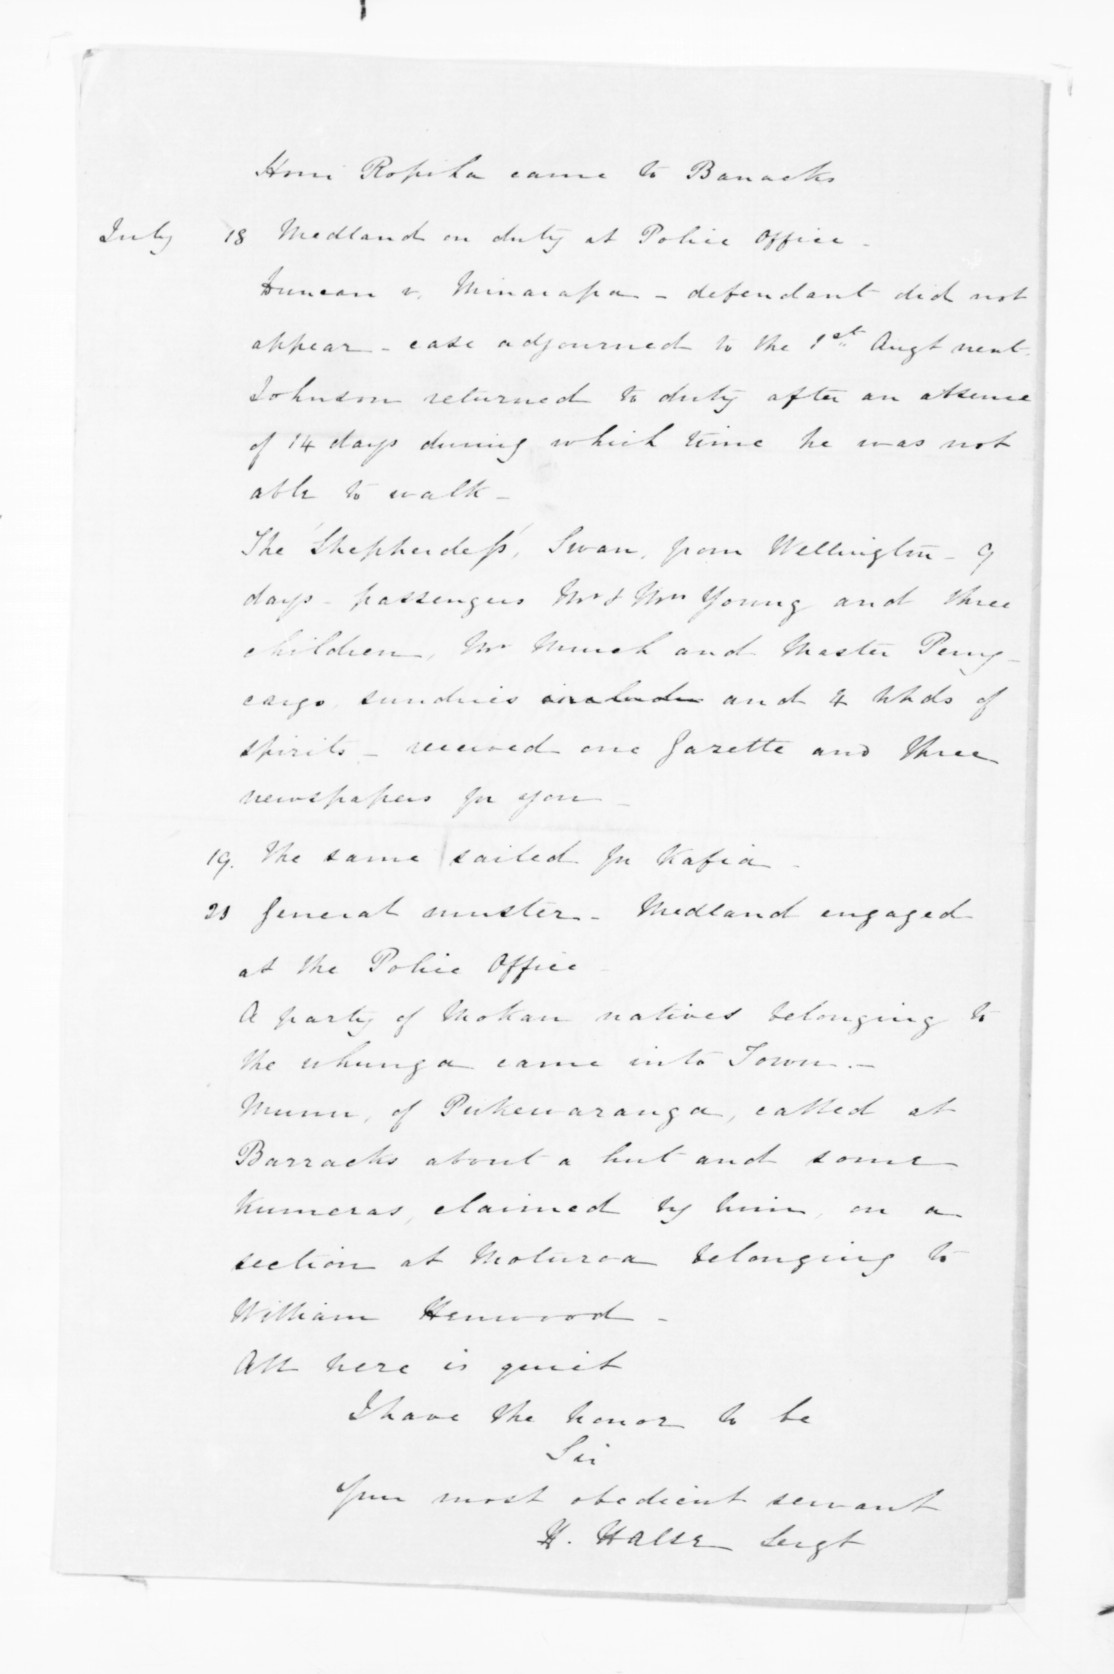 Honi Ropiha came to Barracks
July 18 Medland on duty at Police Office -
Duncan v. Minarapa - defendant did not
appear - case adjourned to the 1st Augt next.
Johnson returned to duty after an absence
of 14 days during which time he was not
able to walk -
The 'Shepherdess', Swan, from Wellington - 9
days - passengers Mr & Mrs Young and three
children, Mr Munch and Master Perry -
cargo, sundries include and 4 hhds of
spirits - received one Gazette and three
newspapers for you -
19. The same sailed for Kafia -
21 General muster - Medland engaged
at the Police Office
A party of Mokau natives belonging to
the whunga came into Town. -
Munu, of Pukewaranga, called at
Barracks about a hut and some
Kumeras, claimed by him, on a
section at Moturoa belonging to
William Henwood -
All here is quiet
I have the honor to be
Sir
Your most obedient servant
H. Halse Sergt